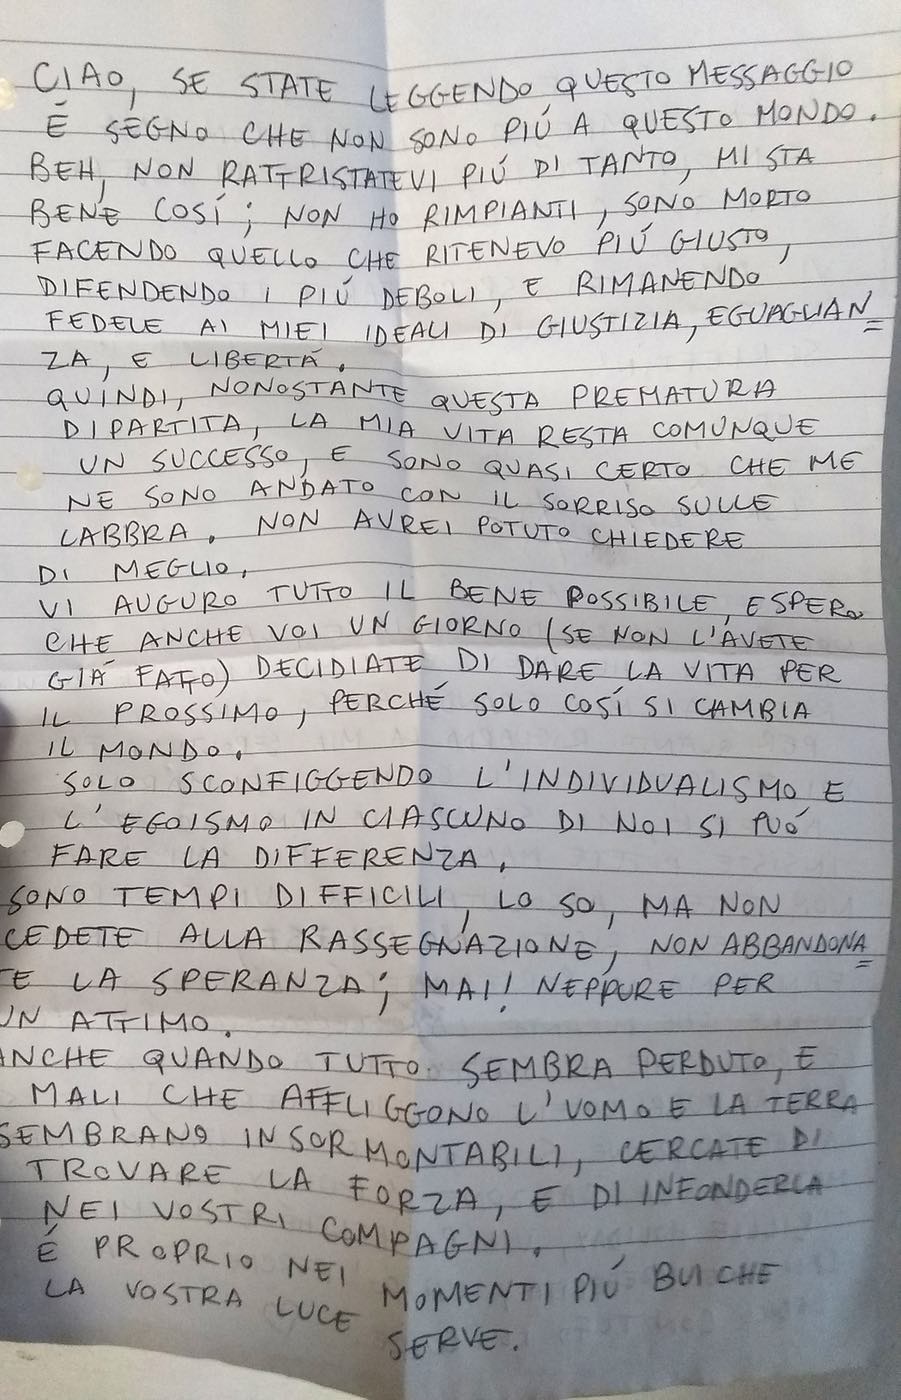 CIAO, SE STATE LEGGENDO QUESTO MESSAGGIO
É SEGNO CHE NON SONO PIÚ A QUESTO MONDO.
BEH, NON RATTRISTATEVI PIÚ DI TANTO, MI STA
BENE COSÍ; NON HO RIMPIANTI, SONO MORTO
FACENDO QUELLO CHE RITENEVO PIÚ GIUSTO,
DIFENDENDO I PIÚ DEBOLI, E RIMANENDO
FEDELE AI MIEI IDEALI DI GIUSTIZIA, EGUAGLIAN=
ZA, E LIBERTÁ.
QUINDI, NONOSTANTE QUESTA PREMATURA
DIPARTITA, LA MIA VITA RESTA COMUNQUE
UN SUCCESSO, E SONO QUASI CERTO CHE ME
NE SONO ANDATO CON IL SORRISO SULLE
LABBRA. NON AVREI POTUTO CHIEDERE
DI MEGLIO.
VI AUGURO TUTTO IL BENE POSSIBILE, E SPERO
CHE ANCHE VOI UN GIORNO (SE NON L'AVETE
GIÁ FATTO) DECIDIATE DI DARE LA VITA PER
IL PROSSIMO, PERCHÉ SOLO COSÍ SI CAMBIA
IL MONDO.
SOLO SCONFIGGENDO L'INDIVIDUALISMO E
L'EGOISMO IN CIASCUNO DI NOI SI PUÓ
FARE LA DIFFERENZA.
SONO TEMPI DIFFICILI, LO SO, MA NON
CEDETE ALLA RASSEGNAZIONE, NON ABBANDONA=
TE LA SPERANZA; MAI! NEPPURE PER
UN ATTIMO.
ANCHE QUANDO TUTTO SEMBRA PERDUTO, E
MALI CHE AFFLIGGONO L'UOMO E LA TERRA
SEMBRANO INSORMONTABILI, CERCATE DI
TROVARE LA FORZA, E DI INFONDERLA
NEI VOSTRI COMPAGNI.
É PROPRIO NEI MOMENTI PIÚ BUI CHE
LA VOSTRA LUCE SERVE.